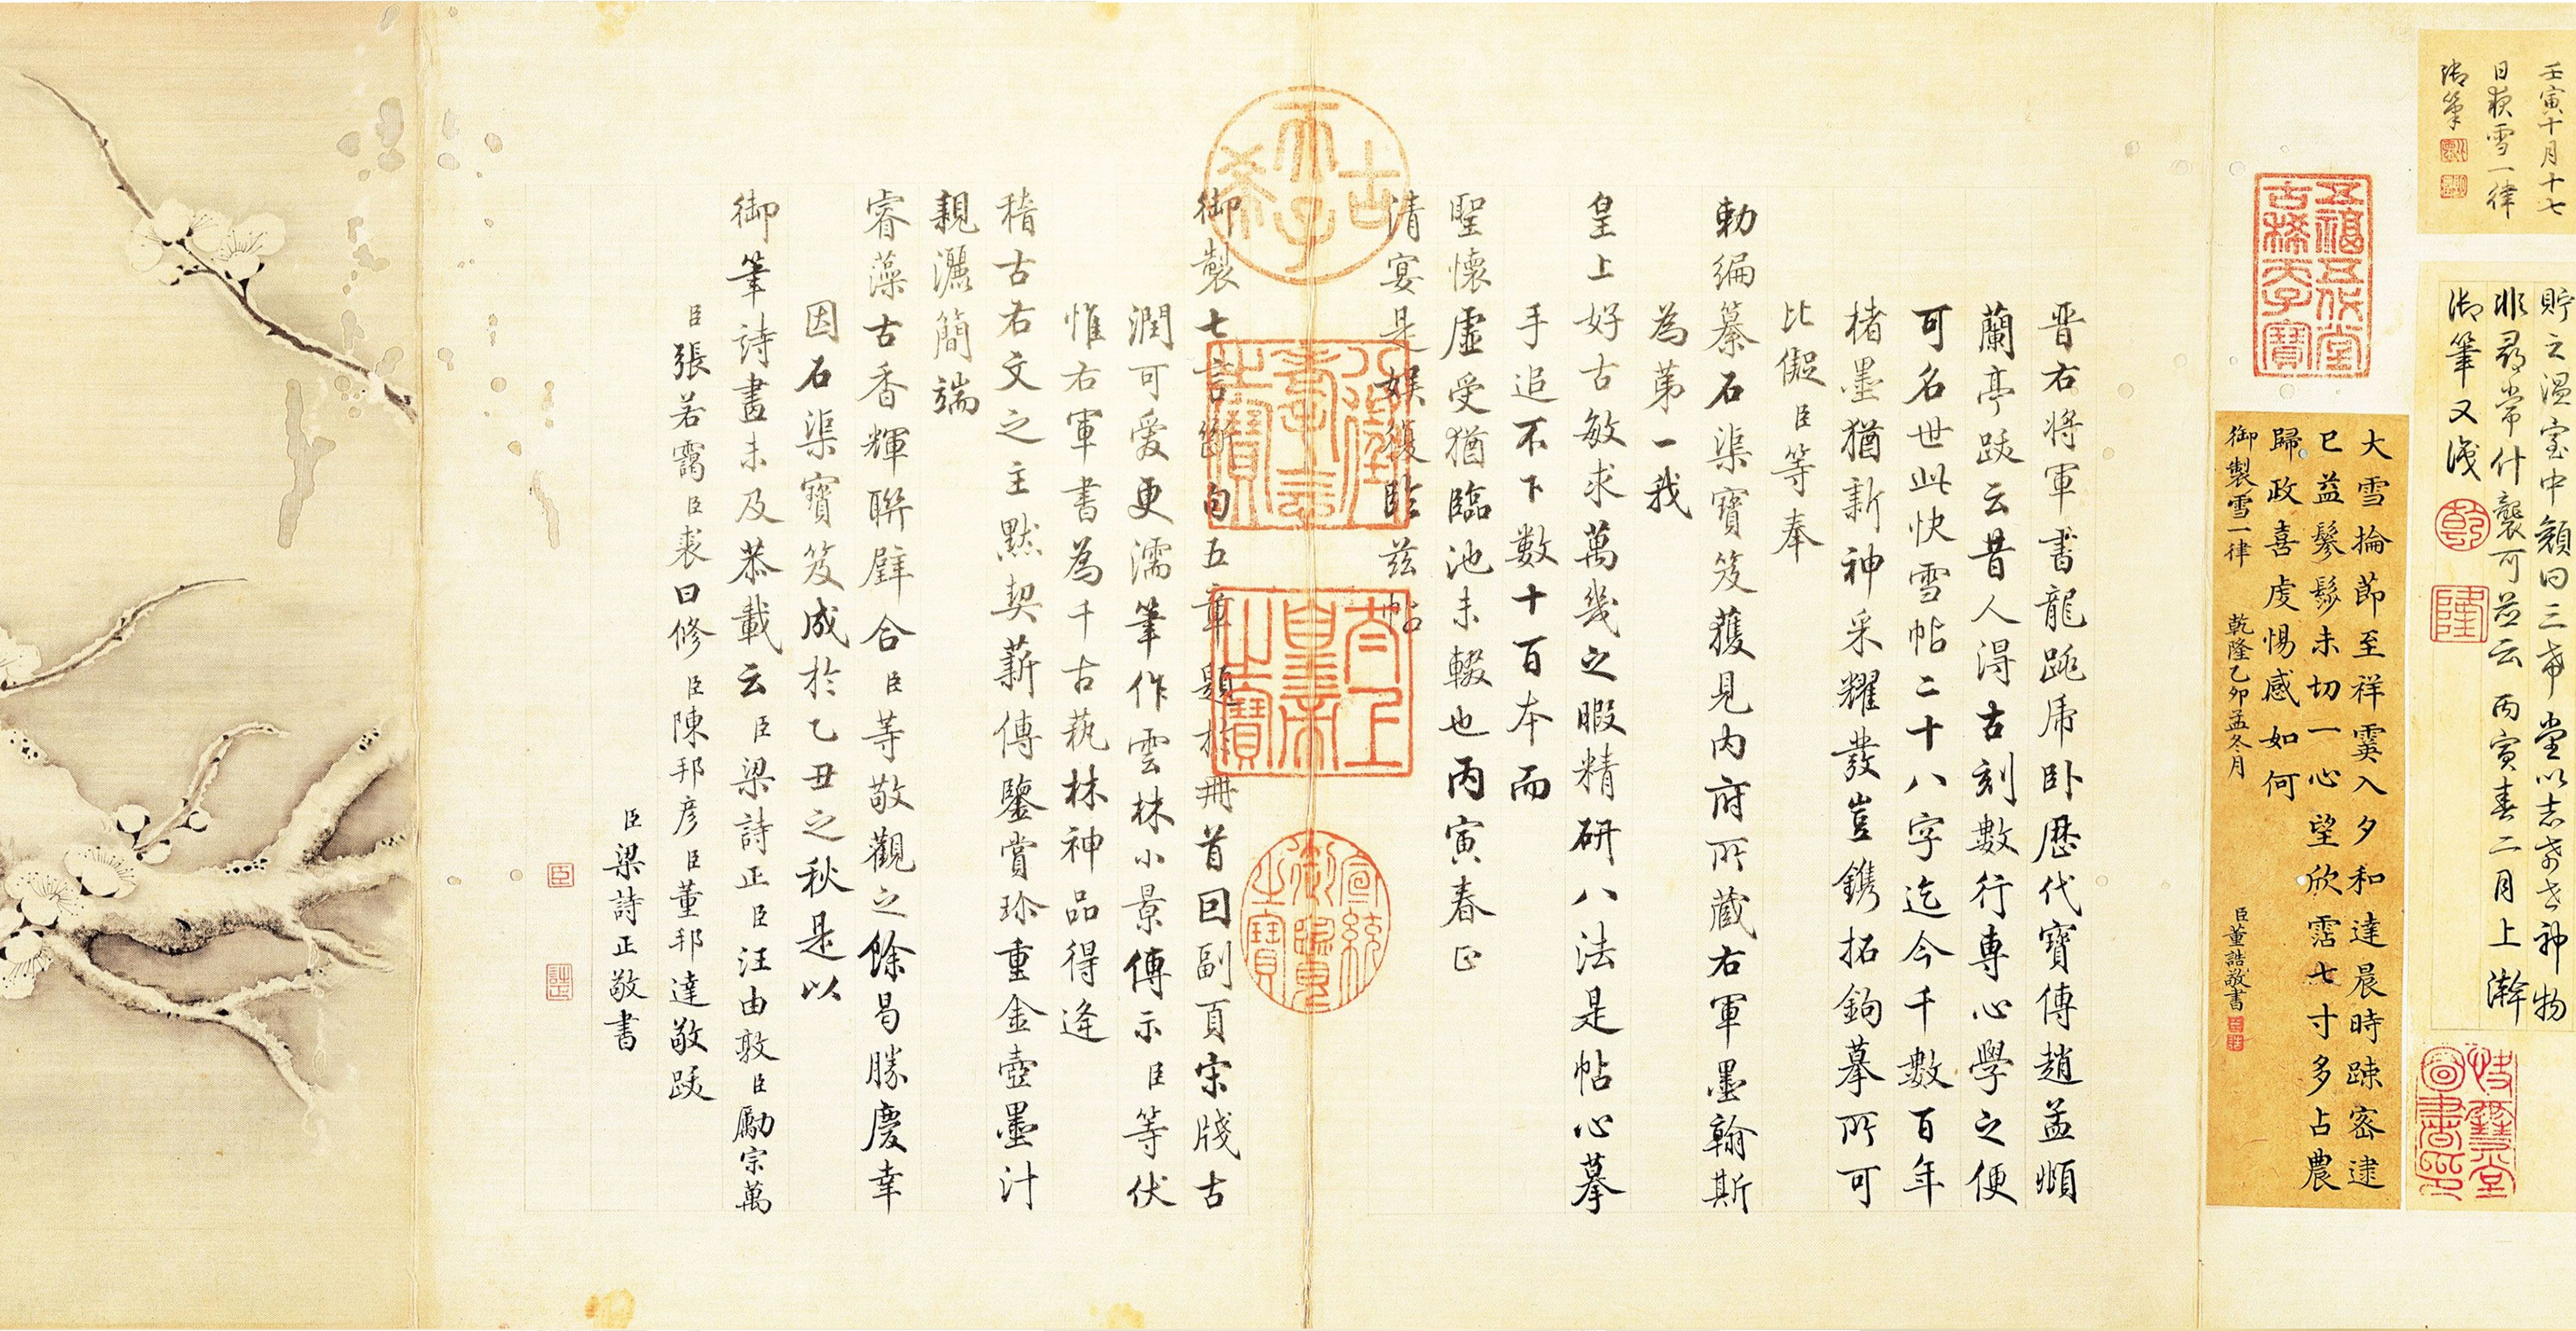 壬寅十月十七
日夜雪一律
御筆
貯之溫室中額曰三希堂以志希世神物
非尋常什襲可並云 丙寅春二月上澣
御筆又識
乾
隆
五福五代堂
古稀天子寶
大雪掄節至祥霙入夕和達晨時踈密逮
巳益鬖髿未切一心望欣霑七寸多占農
歸政喜虔惕感如何
御製雪一律 乾隆乙卯孟冬月 臣董誥敬書
晋右將軍書龍跳虎臥歷代寶傳趙孟頫
蘭亭跋云昔人得古刻數行專心學之便
可名世此快雪帖二十八字迄今千數百年
楮墨猶新神采耀發豈鐫拓鉤摹所可
比儗臣等奉
勅編纂石渠寶笈獲見内府所藏右軍墨翰斯
為第一我
皇上好古敏求萬幾之暇精研八法是帖心摹
手追不下數十百本而
聖懷虛受猶臨池未輟也丙寅春正
清宴是娛復臨兹帖
古
天子
稀
八徵
耄念
之寶
太上
皇帝
之寶
宣統
御覽
之寶
御製七言斷句五章題於冊首囙副頁宋牋古
潤可愛更濡筆作雲林小景傳示臣等伏
惟右軍書為千古蓺林神品得逢
稽古右文之主默契薪傳鑒賞珎重金壺墨汁
親灑簡端
睿藻古香輝聯璧合臣等敬觀之餘曷勝慶幸
因石渠寶笈成於乙丑之秋是以
御筆詩畫未及恭載云臣梁詩正臣汪由敦臣勵宗萬
臣張若靄臣裘曰修臣陳邦彦臣董邦達敬跋
臣梁詩正敬書
臣